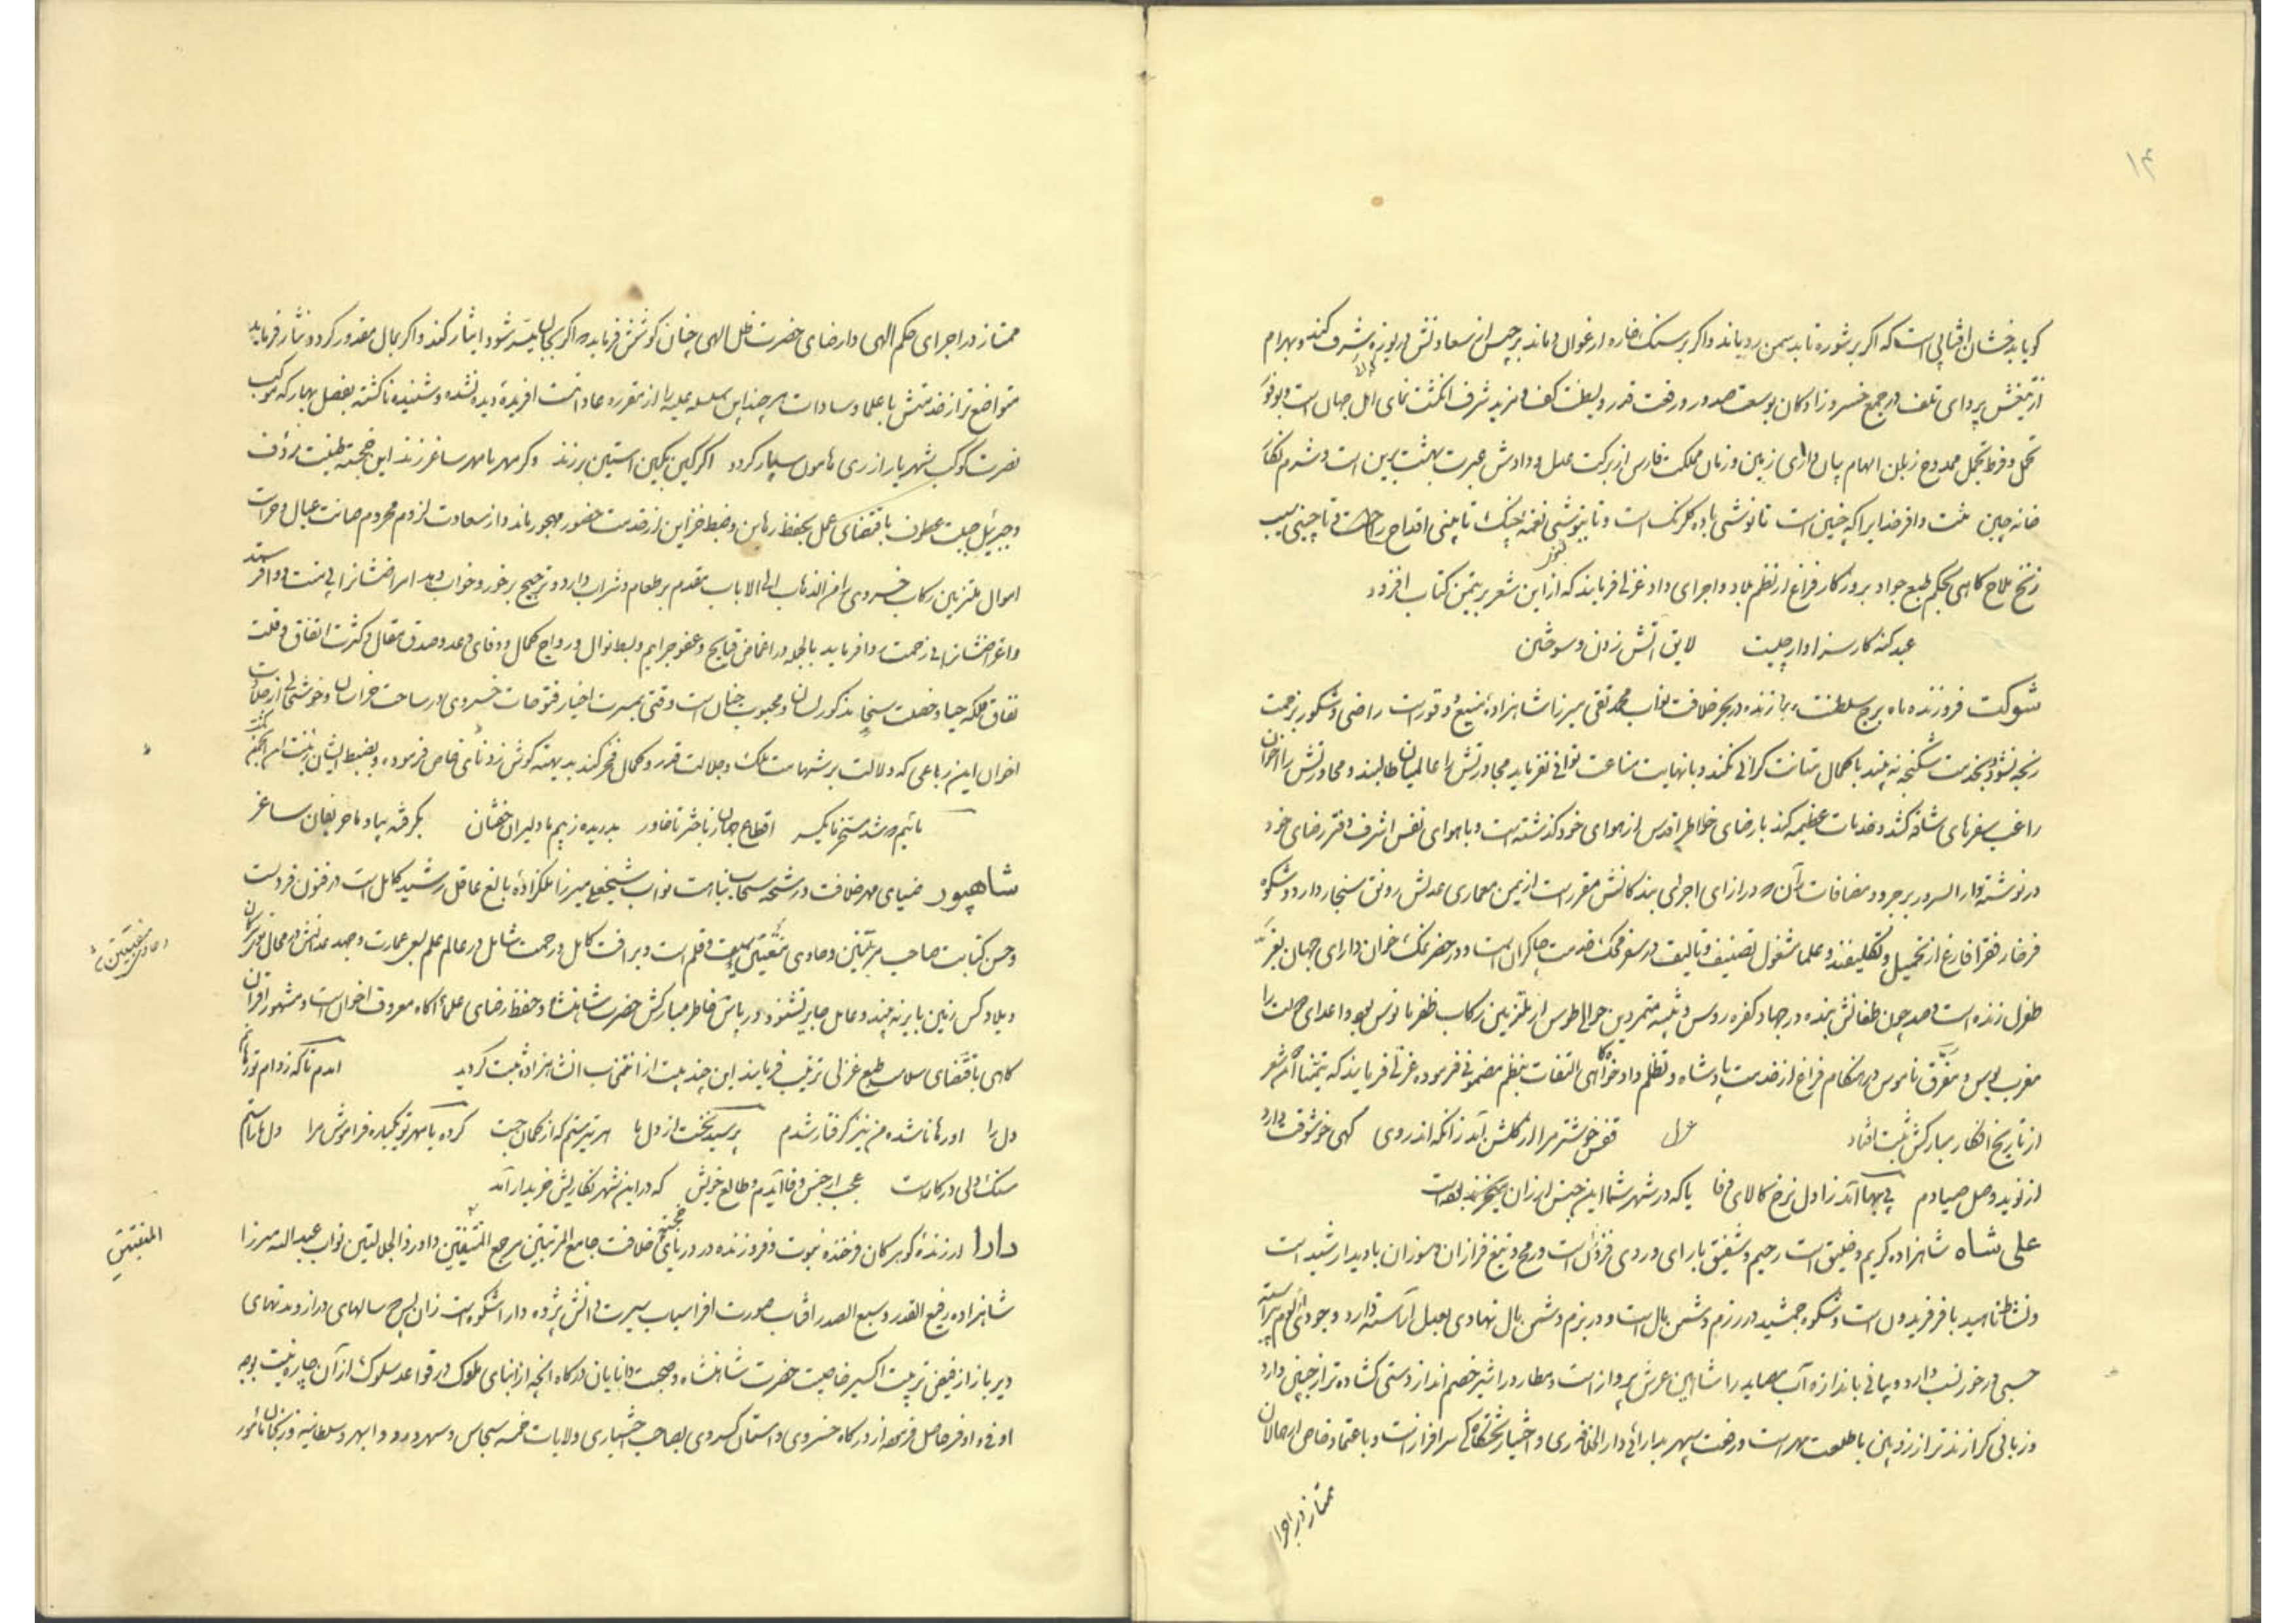 ۱۴
کویا بدخشان افتابی است که اکر بر شوره تابد سمن رویاند و اکر بر سنک خاره ارغوان دماند برجیس از سعادتش دریوزه شرف کند و بهرام
از تیغش پروای تلف در جمع خسروزادکان بوسعت صدور و رفعت قدر و بسطت کف و مزید شرف انکشت نمای اهل جهان است و بوفور
تحمل و فرط تجمل ممدوح زبان الهام بیان دارای زمین و زمان مملکت فارس از برکت عدل و دادش عبرت بهشت برین است و شرم نکار
خانه چین منت وافر خدایرا که چنین است تا نوشی باده کلرنک است و تا نیوشی نغمه چنک تا بینی اقداح راحست تا چینی سیب
زنخ ملاح کاهی بحکم طبع جواد بروزکار فراغ از نظم بلاد و اجرای داد غزلی فرمایند که از این شعر بر تیمن کتاب افزود
عبد کنه کار سزاوار چیست لایق آتش زدن و سوختن
شوکت فروزنده ماه برج سلطنت برازنده در بحر خلافت نواب محمد تقی میرزا شاهزاده منیع و قور است راضی و شکور بزحمت
رنجه نشود و بخدمت شکنجه نه بیند با کمال متانت کرانی نکند و با نهایت مناعت توانی نفرماید مجاورتش را عالمیان طالبند و محاورتش را اخوان
راغب سفرهای شاقه کشد و خدمات عظیمه کند با رضای خواطر اقدس از هوای خود کذشته است و با هوای نفس اشرف دفتر رضای خود
در نوشته دار السرور بروجرد و مضافات آن که در ازای اجرای بندکانش مقرر است از یمن معماری عدلش رونق سنجار دارد و شکوه
فرخار فقرا فارغ از تحمیل و تکلیفند و علما مشغول تصنیف و تالیف در سفر محک خدمت چاکران است و در حضر نمک خوان دارای جهان بفر
طغرل زنده است و صد چون طغانش بنده در جهاد کفره روس و تنبیه متمردین حوالی طوس از ملتزمین رکاب ظفر مانوس بود و اعدای دولت را
مغرب بوس و مفرق ناموس در هنکام فراغ از خدمت پادشاه و تظلم دادخواه کاهی التفات بنظم مضمونی فرموده غزلی فرمایند که تیمنا این شعر
از نتایج افکار مبارکش ثبت افتاد غزل قفس خوشتر مرا از کلشن آید زانکه اندر وی کهی خوشوقت دارد
از نوید وصل صیادم بی بهاآمد ز اول نرخ کالای وفا یا که در شهر شما این جنس ارزان بوده است
علی شاه شاهزاده کریم و خلیق است رحیم و شفیق با رای و روی فروزان است و رمح و تیغ فرازان و سوزان با دیدار شید است
و نشاط ناهید با فر فریدون است و شکوه جمشید در رزم دشمن مال است و در بزم دشمن بال نهادی بعدل آراسته دارد و وجودی از لوم پیراسته
حسبی در خور نسب دارد و پیانی باندازه آب همایه را شاهین عرش پرواز است و مطارد را شیر خصم انداز دستی کشاده تر از جبین دارد
و زبانی کرازنده تر از زوبین با طلعت مهر است و رفعت سپهر بدارائی دار الخلافه ری و اختیار تختکاه کی سرافراز است و باعتماد خاص از همالان
ممتاز در اجرا
ممتاز در اجرای حکم الهی و ارضای حضرت ظل الهی چنان کوشش فرماید که اکر بجان میسر شود ایثار کند و اکر بمال مقدور کردد نثار فرماید
متواضع تر از خدمتش با علما و سادات هر چند این سلسله علیه را از مقرره عادات است افریده دیده نشده و شنیده ناکشته بفصل بهار که موکب
نصرت کوکب شهریار از ری هامون سپار کردد اکر کین بکین استین بر زند و کر مهر با مهر ساغر زند این خجسته طینت رؤف
و جبرئیل جبلت عطوف باقتضای عمل بحفظ رهاین و ضبط خزاین از خدمت حضور مهجور ماند و از سعادت لزوم محروم صیانت عیال و حراست
اموال ملتزمین رکاب خسروی را من الذهاب الی الایاب مقدم بر طعام و شراب دارد و ترجیح بر خور و خواب دهد امراضشانرا بی منت دوا فرستد
و اغراضشانرا بی زحمت روا فرماید بالجمله در اغماض قبایح و عفو جرایم و بسط نوال و رواج کمال و وفای وعد و صدق مقال و کثرت اتفاق و قلت
نفاق ملکه حیا و خصلت سخا مذکور لسان و محبوب جنان است وقتی بمسرت اخبار فتوحات خسروی در ساحت خراسان و خوشدلی از صلات
اخوان این رباعی که دلالت بر شهامت ملک و جلالت قدر و کمال فخر کند بدیهة کوش زد نامی خاص فرموده و بضبط ایشان زینت این انجمن کشت
مائیم که شد مسخر ما یکسر اقطاع جهان ز باختر تا خاور بدریده ز بیم ما دلیران خفتان بکرفته بیاد ما حریفان ساغر
شاهپور ضیای مهر خلافت و رشحه سحاب نیابت نواب شیخعلی میرزا ملکزاده بالغ عاقل رشید کامل است در فنون فروست
و حسن کتابت صاحب مرتبتین و حاوی منقبتین سیف و قلم است و برافت کامل و رحمت شامل در عالم علم
و بلاد کس زمین بایر نه بیند و عامل جابر نشنود در پاس خاطر مبارکش حضرت شاهنشاه و حفظ رضای علمای آکاه معروف اخوان است و مشهور اقران
کاهی باقتضای سلامت طبع غزلی ترتیب فرمایند این چند بیت از منتخب آن شاهزاده ثبت کردید امدم تا که ز دام تو رهانم
دل را او رها ناشده من نیز کرفتار شدم پرسید بخت از دل ما هر تیر ستم که از کمان جست کرده با مهر تو یکباره فراموش مرا دل ما راستم
سنک دلی در کار است عجب از جنس وفا آیدم و طالع خویش که در این شهر نکاریش خریدار آمد
دارا ارزنده کوهر کان فرخنده نبوت و فروزنده در دریای خجسته خلافت جامع المرتبتین مرجع المنقبتین داور ذالجلالتین نواب عبدالله میرزا
شاهزاده رفیع القدر وسیع الصدر افتاب صورت افراسیاب سیرت دانش پژوه دارا شکوه است زان پس که سالهای دراز و مدتهای
دیرباز از فیض تربیت اکسیر خاصیت حضرت شاهنشاه و صحبت دانایان درکاه انچه از ابنای ملوک در قواعد سلوک از آن چاره نیست بوجه
اوفی و اوفر حاصل فرمود از درکاه خسروی و استمان کسروی بصاحب اختیاری ولایات خمسه سجاس و سهرورد و ابهر و سلطانیه و زنجان مامور
و حاوی منقبتین
المنقبتین